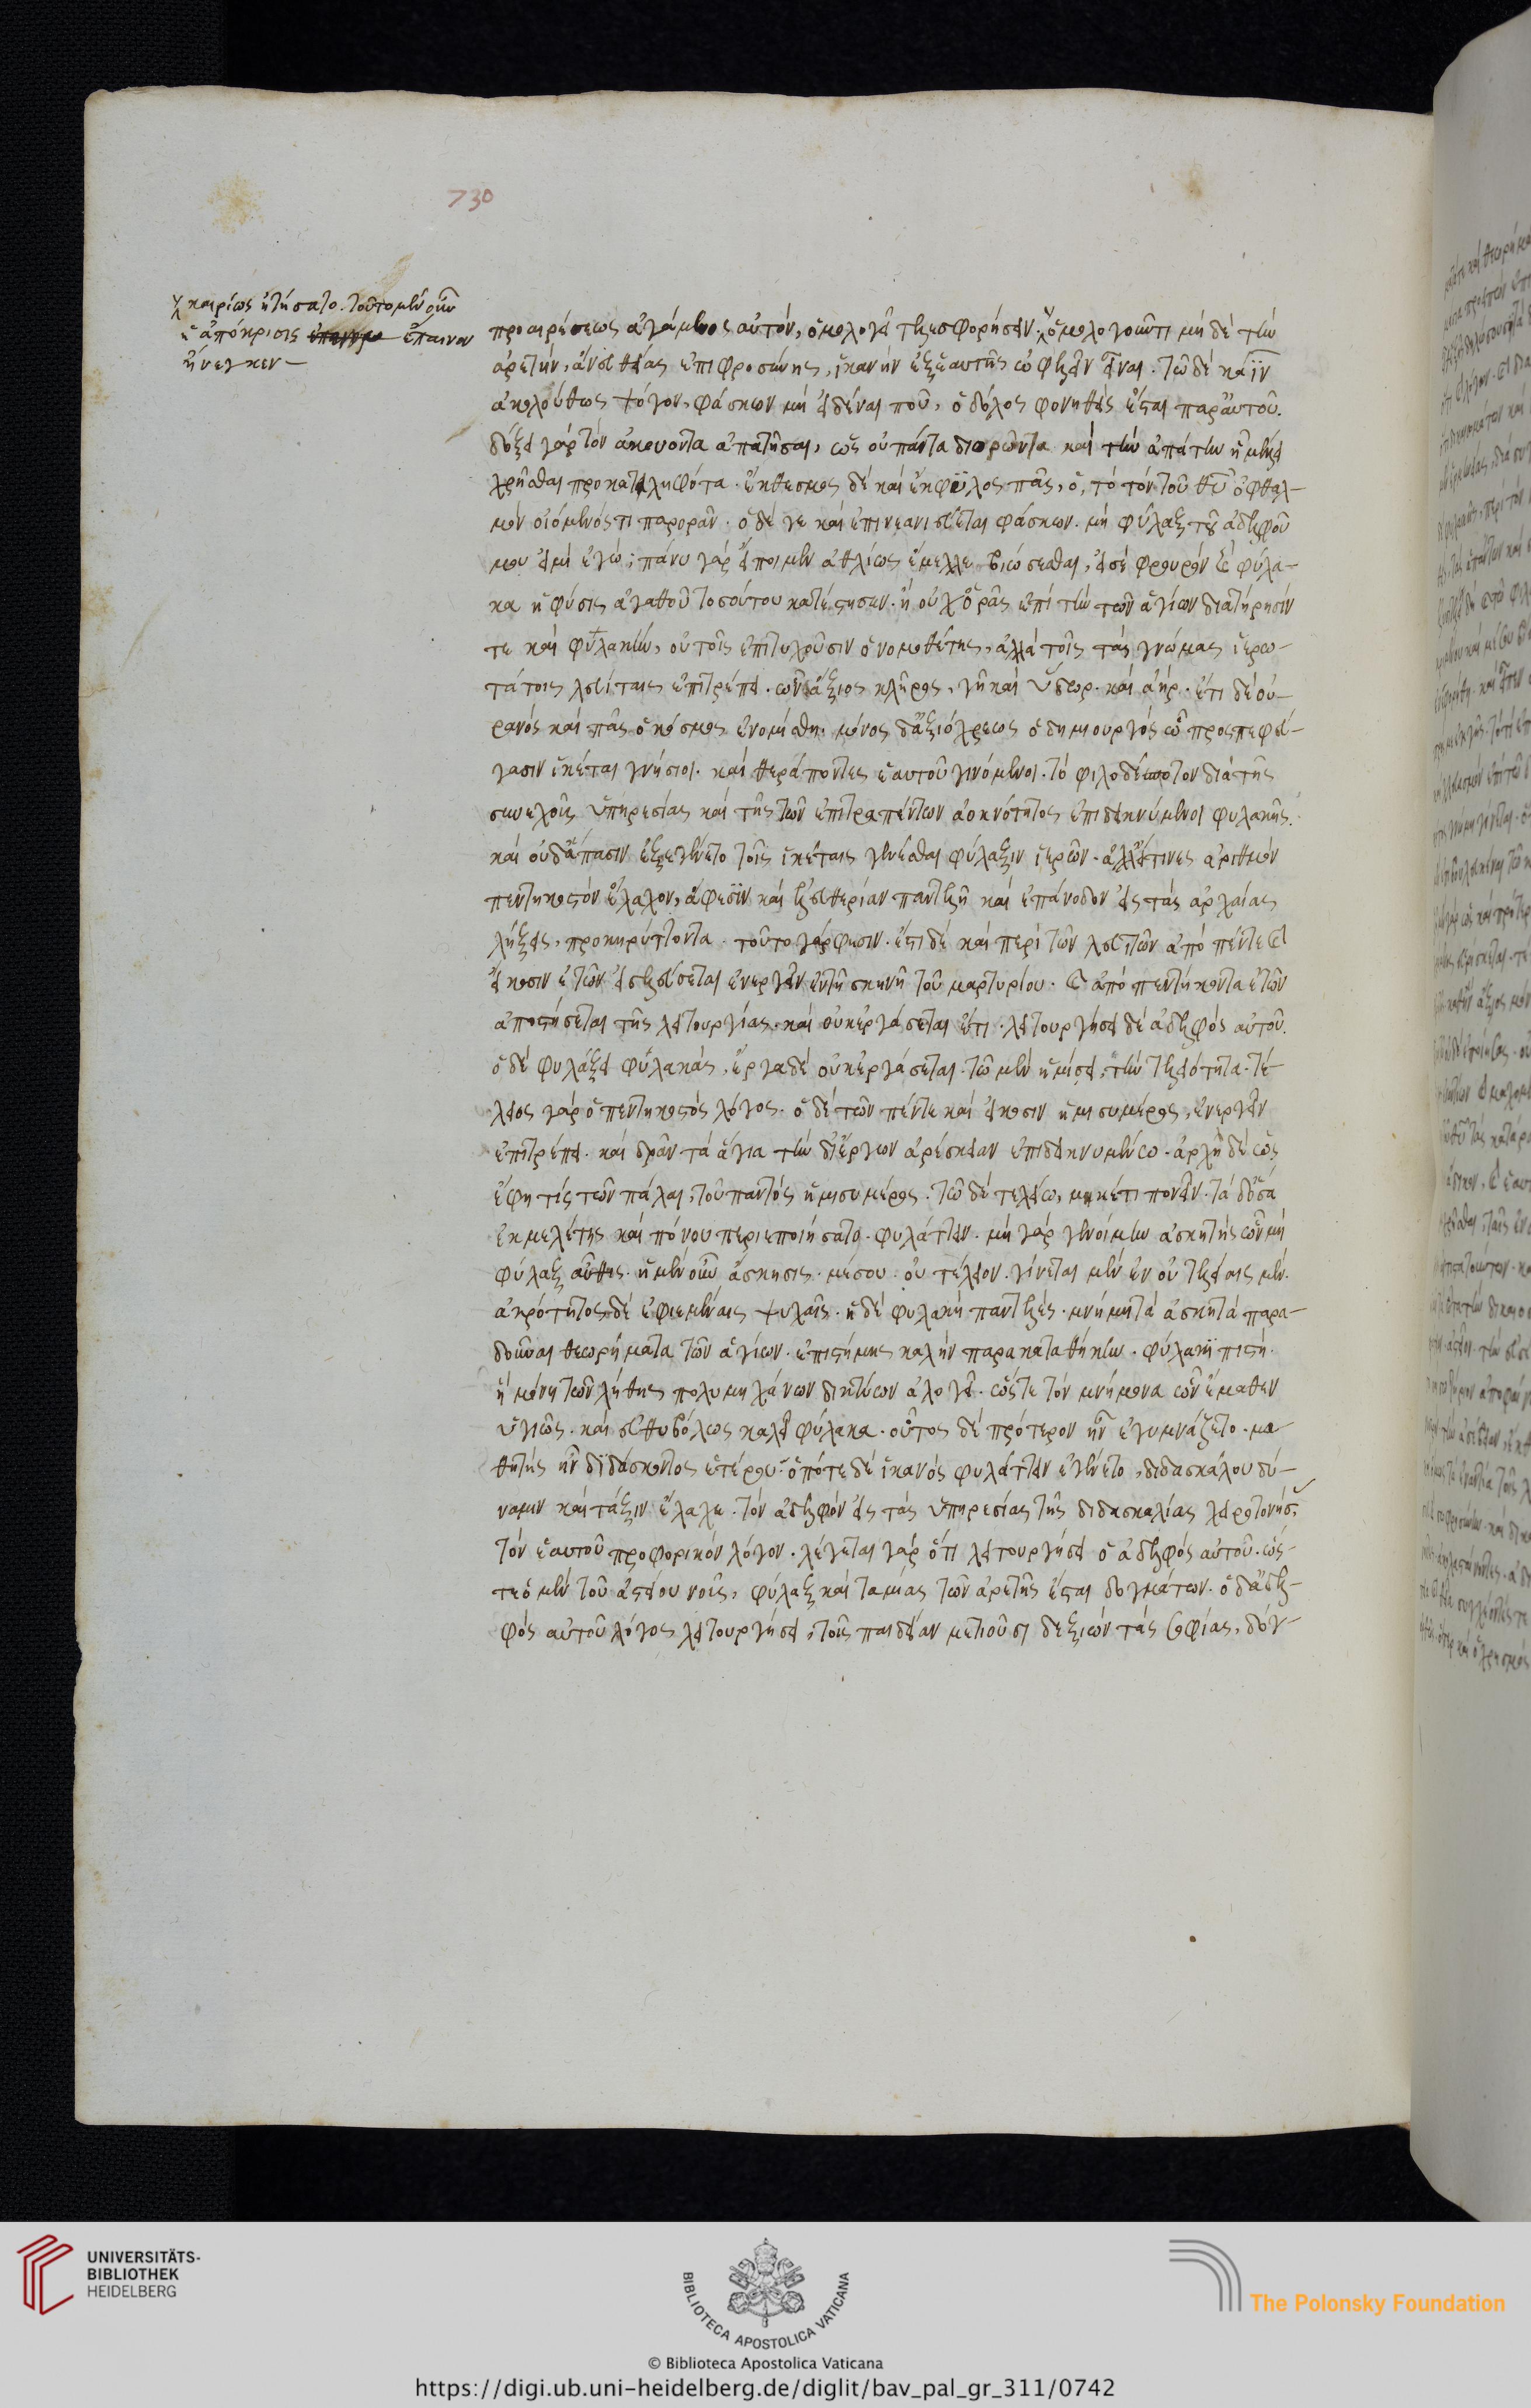 730
καιρίως ᾐτήσατο. τοῦτο μὲν οὖν
ἡ ἀπόκρισις ἔπαινον
ἤνεγκεν—
προαιρέσεως ἀγάμενος αὐτόν, ὁμολογεῖ τελεσφορήσειν. ὁμολογοῦντι μὴ δὲ τὴν
ἀρετήν, ἄνευ θείας ἐπιφροσύνης, ἱκανὴν ἐξ ἑαυτῆς ὠφελεῖν εἶναι. τῶ δὲ κάϊν
ἀκολούθως ψόγον, φάσκων μὴ εἰδέναι ποῦ, ὁ δόλος φονηθεὶς ἔσται παρ' αὐτοῦ.
δόξει γὰρ τὸν ἀκουοντα ἀπατῆσαι, ὡς οὐ πάντα διορῶντα καὶ τὴν ἀπάτην ἧ μέλλει
χρῆσθαι προκατειληφότα. ἔκθεσμος δὲ καὶ ἐκφύλος πᾶς, ὁ, τὸ τὸν τοῦ θῦ ὀφθαλ-
μὸν οἰόμενός τι παρορᾶν. ὁ δέ γε καὶ ἐπινεανιεύεται φάσκων. μὴ φύλαξ τοῦ ἀδελφοῦ
μου εἰμὶ ἐγώ; πάνυ γὰρ εἴποιμεν ἀθλίως ἔμελλε βιώσεσθαι, εἰ σὲ φρουρὸν καὶ φύλα-
κα ἡ φύσις ἀγαθοῦ τοσούτου κατέστησεν. ἢ οὐχ ὁρᾶς ἐπὶ τὴν τῶν ἁγίων διατήρησίν
τε καὶ φυλακὴν, οὐ τοῖς ἐπιτυχοῦσιν ὁ νομοθέτης, ἀλλὰ τοῖς τὰς γνώμας ἱερω-
τάτοις λευΐταις ἐπιτρέπει. ὧν ἄξιος κλῆρος, γῆ καὶ ὕδωρ. καὶ ἀήρ. ἔτι δὲ οὐ-
ρανὸς καὶ πᾶς ὁ κόσμος ἐνομίσθη. μόνος δ' ἀξιόχρεως ὁ δημιουργὸς ὧ προςπεφεύ-
γασιν ἱκέται γνήσιοι. καὶ θεράποντες ἑαυτοῦ γινόμενοι. τὸ φιλοδέσποτον διὰ τῆς
συνεχοῦς ὑπηρεσίας καὶ τῆς τῶν ἐπιτραπέντων ἀοκνότητος ἐπιδεικνύμενοι φυλακῆς.
καὶ οὐδ' ἅπασιν ἐξεγένετο τοῖς ἱκέταις γενέσθαι φύλαξιν ἱερῶν. ἀλλ' οἵτινες ἀριθμὸν
πεντηκοστὸν ἔλαχον, ἄφεσϊν καὶ ἐλευθερίαν παντελῆ καὶ ἐπάνοδον εἰς τὰς ἀρχαίας
λήξεις, προκηρύττοντα. τοῦτο γάρ φησιν. ἔστι δὲ καὶ περὶ τῶν λευιτῶν ἀπὸ πέντε καὶ
εἴκοσιν ἐτῶν εἰσελεύσεται ἐνεργεῖν ἐν τῇ σκηνῇ τοῦ μαρτυρίου. καὶ ἀπὸ πεντήκοντα ἐτῶν
ἀποστήσεται τῆς λειτουργίας. καὶ οὐκ ἐργάσεται ἔτι. λειτουργήσει δὲ ἀδελφὸς αὐτοῦ.
ὁ δὲ φυλάξει φύλακάς, ἔργα δὲ οὐκ ἐργάσεται. τῶ μὲν ἡμίσει, τὴν τελειότητα. τέ-
λειος γὰρ ὁ πεντηκοστὸς λόγος. ὁ δὲ τῶν πέντε καὶ εἴκοσιν ἡμισυ μέρος, ἐνεργεῖν
ἐπιτρέπει. καὶ δρᾶν τὰ ἅγια τὴν δι' ἔργων ἀρέσκειαν ἐπιδεικνυμένω. ἀρχὴ δὲ ὡς
ἔφη τίς τῶν πάλαι, τοῦ παντὸς ἥμισυ μέρος. τῶ δὲ τελείω, μηκέτι πονεῖν. τὰ δ' ὅσα
ἐκ μελέτης καὶ πόνου περιεποιήσατο. φυλάττειν. μὴ γὰρ γενοίμην ἀσκητὴς ὧν μὴ
φύλαξ αὖθις. ἡ μὲν οὖν ἄσκησις. μέσου. οὐ τέλειον. γίνεται μὲν ἐν οὐ τελείαις μὲν.
ἀκρότητος δὲ ἐφιεμέναις ψυχαῖς. ἡ δὲ φυλακὴ παντελές. μνήμη τὰ ἀσκητὰ παρα-
δοῦναι θεωρήματα τῶν ἁγίων. ἐπιστήμης καλὴν παρακαταθήκην. φύλακι πιστῇ.
ἣ μόνη τῶν λήθης πολυμηχάνων δικτύων ἀλογεῖ. ὥςτε τὸν μνήμονα ὧν ἔμαθεν
ὑγιῶς. καὶ εὐθυβόλως καλεῖ φύλακα. οὗτος δὲ πρότερον ἦν ἐγυμνάζετο. μα
θητὴς ἦν διδάσκοντος ἑτέρου. ὁπότε δὲ ἱκανὸς φυλάττειν ἐγένετο, διδασκάλου δύ-
ναμιν καὶ τάξιν ἔλαχε. τὸν ἀδελφὸν εἰς τὰς ὑπηρεσίας τῆς διδασκαλίας χειροτονήσ
τὸν ἑαυτοῦ προφορικὸν λόγον. λέγεται γὰρ ὅτι λειτουργήσει ὁ ἀδελφὸς αὐτοῦ. ὥς-
τε ὁ μὲν τοῦ ἀστείου νοῦς, φύλαξ καὶ ταμίας τῶν ἀρετῆς ἔσται δογμάτων. ὁ δ' ἀδελ-
φὸς αὐτοῦ λόγος λειτουργήσει, τοῖς παιδείαν μετιοῦσι δεξιὼν τὰς σοφίας, δόγ-
UNIVERSITÄTS-
BIBLIOTHEK
HEIDELBERG
BIBLIOTECA APOSTOLICA VATICANA
The Polonsky Foundation
© Biblioteca Apostolica Vaticana
https://digi.ub.uni-heidelberg.de/diglit/bav_pal_gr_311/0742